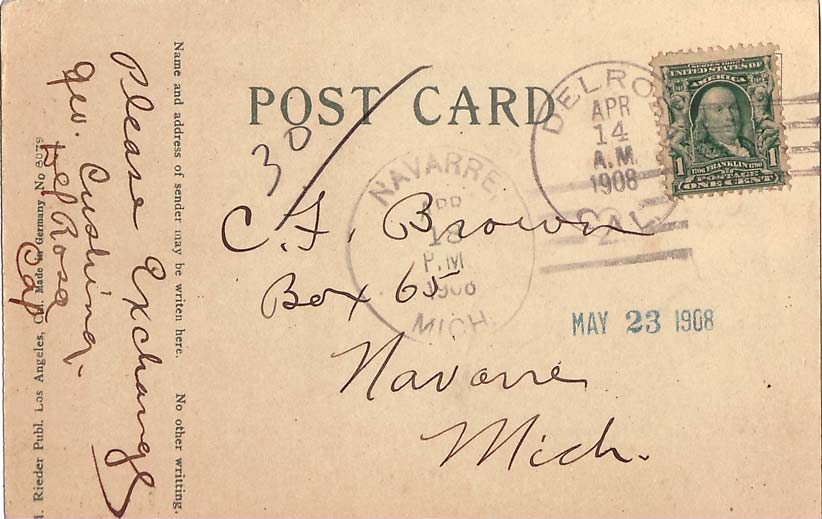 POST CARD
DELROSA
APR
14
A.M.
1908
CAL.
SERIES 1902
UNITED STATES OF
AMERICA
1 1706 FRANKLIN 1790 1
POSTAGE
ONE CENT
30
NAVARRE,
APR
18
P.M.
1908
MICH.
C. F. Brown
Box 65
Navarre
Mich.
MAY 23 1908
Name and address of sender may be writen here. No other writting.
Please Exchange
Geo. Cushing.
Del Rosa
Cal
M. Rieder Publ. Los Angeles, Cal. Made in Germany No 8079